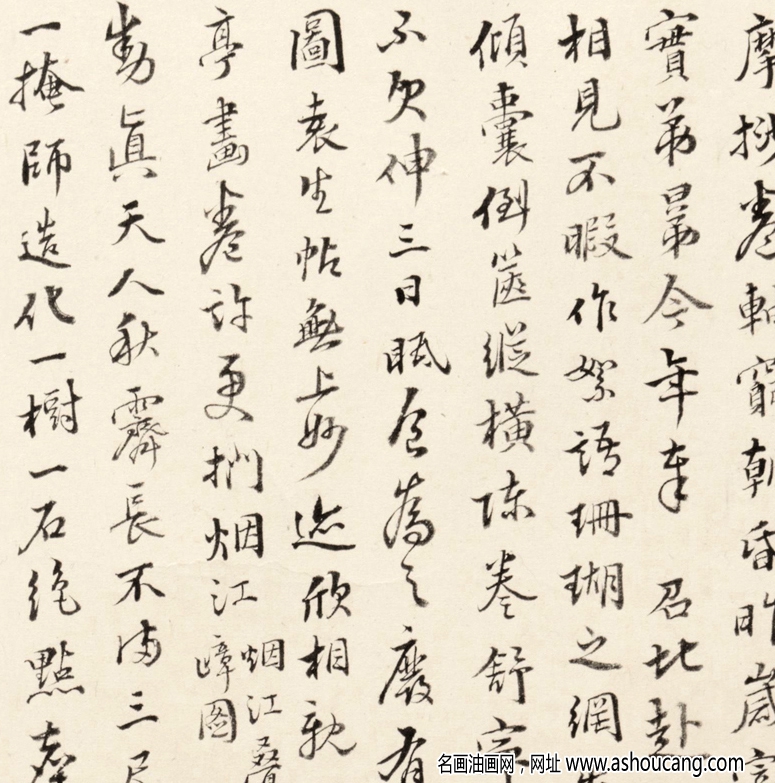 摩挲卷軸窮朝昏昨歲
實第㫷今年奉 召北赴
相見不暇作絮語珊瑚之網
傾囊倒篋縱橫陳卷舒
不欠伸三日眠食為之廢有
圖袁生帖無上妙迹欣相親
亭畫卷許更捫烟江嶂圖
烟江疊
動真天人秋霽長不滿三尺
一掩師造化一樹一石絶點
名画油画网，网址 www.ashoucang.com